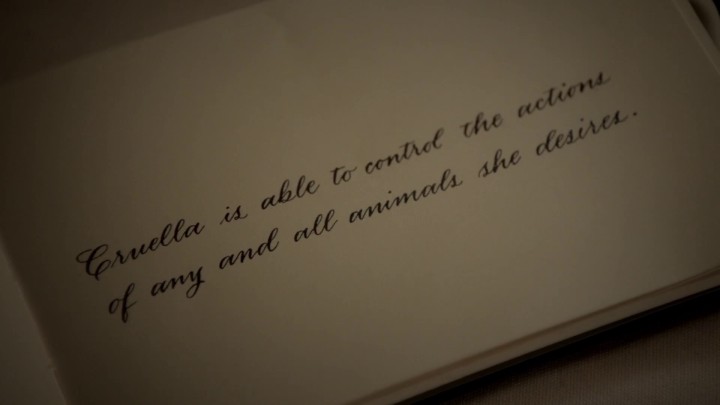 Cruella is able to control the actions
of any and all animals she desires.